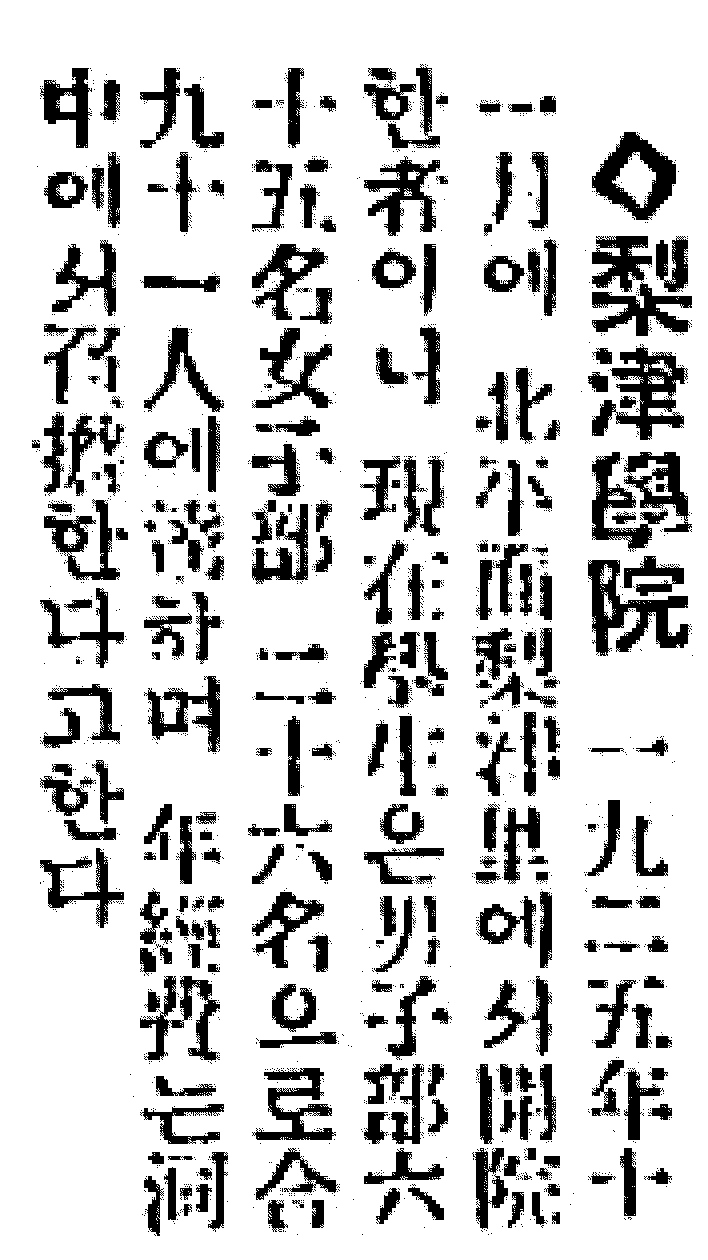 ◇梨津學院 一九二五年十
一月에 北平面梨津里에서開院
한者이니 現在學生은男子部六
十五名女子部 二十六名으로合
九十一人에達하며 年經費는洞
中에서負擔한다고한다